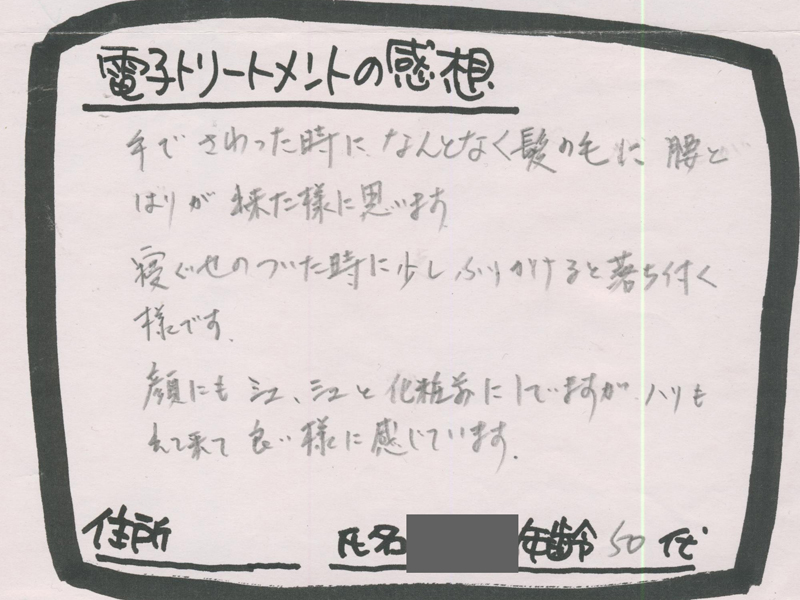 電子トリートメントの感想
手でさわった時に なんとなく髪の毛に 腰と
はりが 来た様に思います
寝ぐせのついた時に少しふりかけると落ち付く
様です.
顔にも シュ、シュと 化粧前に ますが ハリも
来て 良い 様に 感じています.
住所 氏名 年齢 50 代